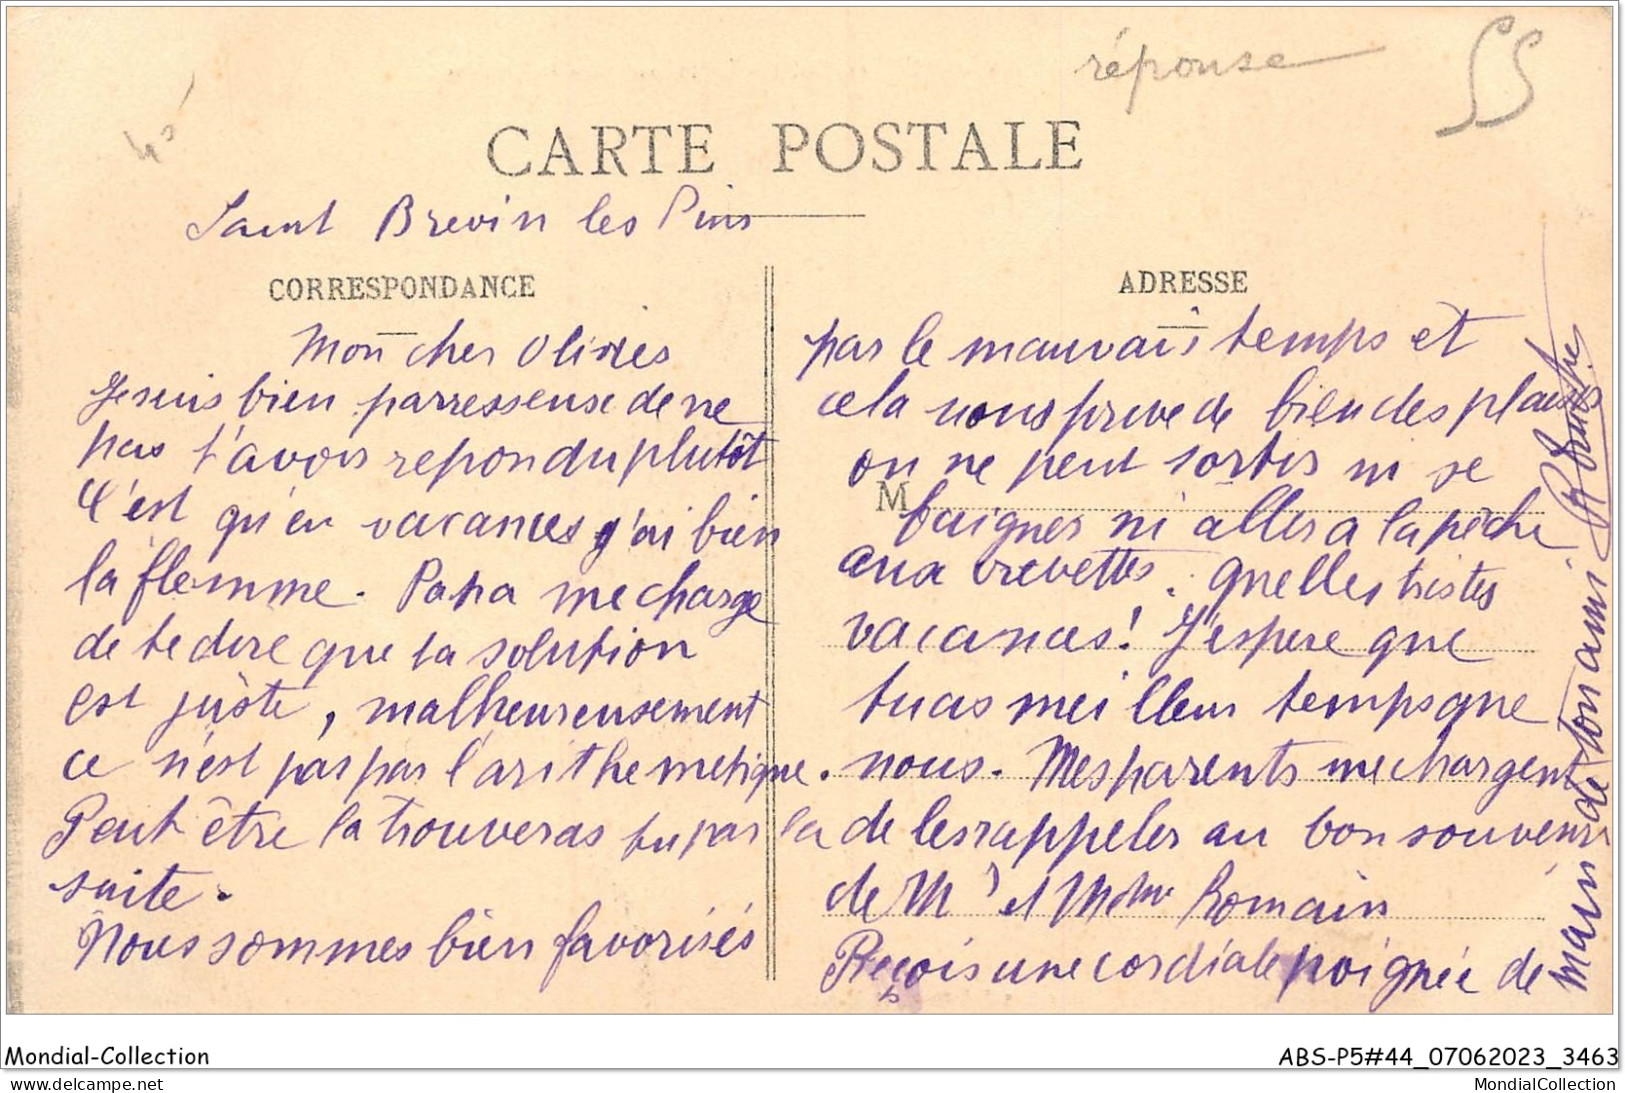 réponse
CARTE POSTALE
Saint Brevin les Pins
CORRESPONDANCE
Mon cher Olivier
Je suis bien parresseuse de ne
pas t'avoir repondu plutôt
C'est qu'en vacances j'ai bien
la flemme. Papa me charge
de te dire que ta solution
est juste, malheureusement
ce n'est pas par l'arithemetique.
Peut être la trouveras tu par la
suite.
Nous sommes bien favorisés
ADRESSE
par le mauvais temps et
cela nous prive de bien des plaisirs
on ne peut sortir ni se
M
baigner ni aller a la pêche
aux crevettes. quelles tristes
vacances! J'espere que
tu as meilleur temps que
nous. Mes parents me chargent
de les rappeler au bon souvenir
de Mr et Mdme Romain
Reçois une cordiale poignée de
main de ton ami
Mondial-Collection
ABS-P5#44_07062023_3463
delcampe.net
MondialCollection